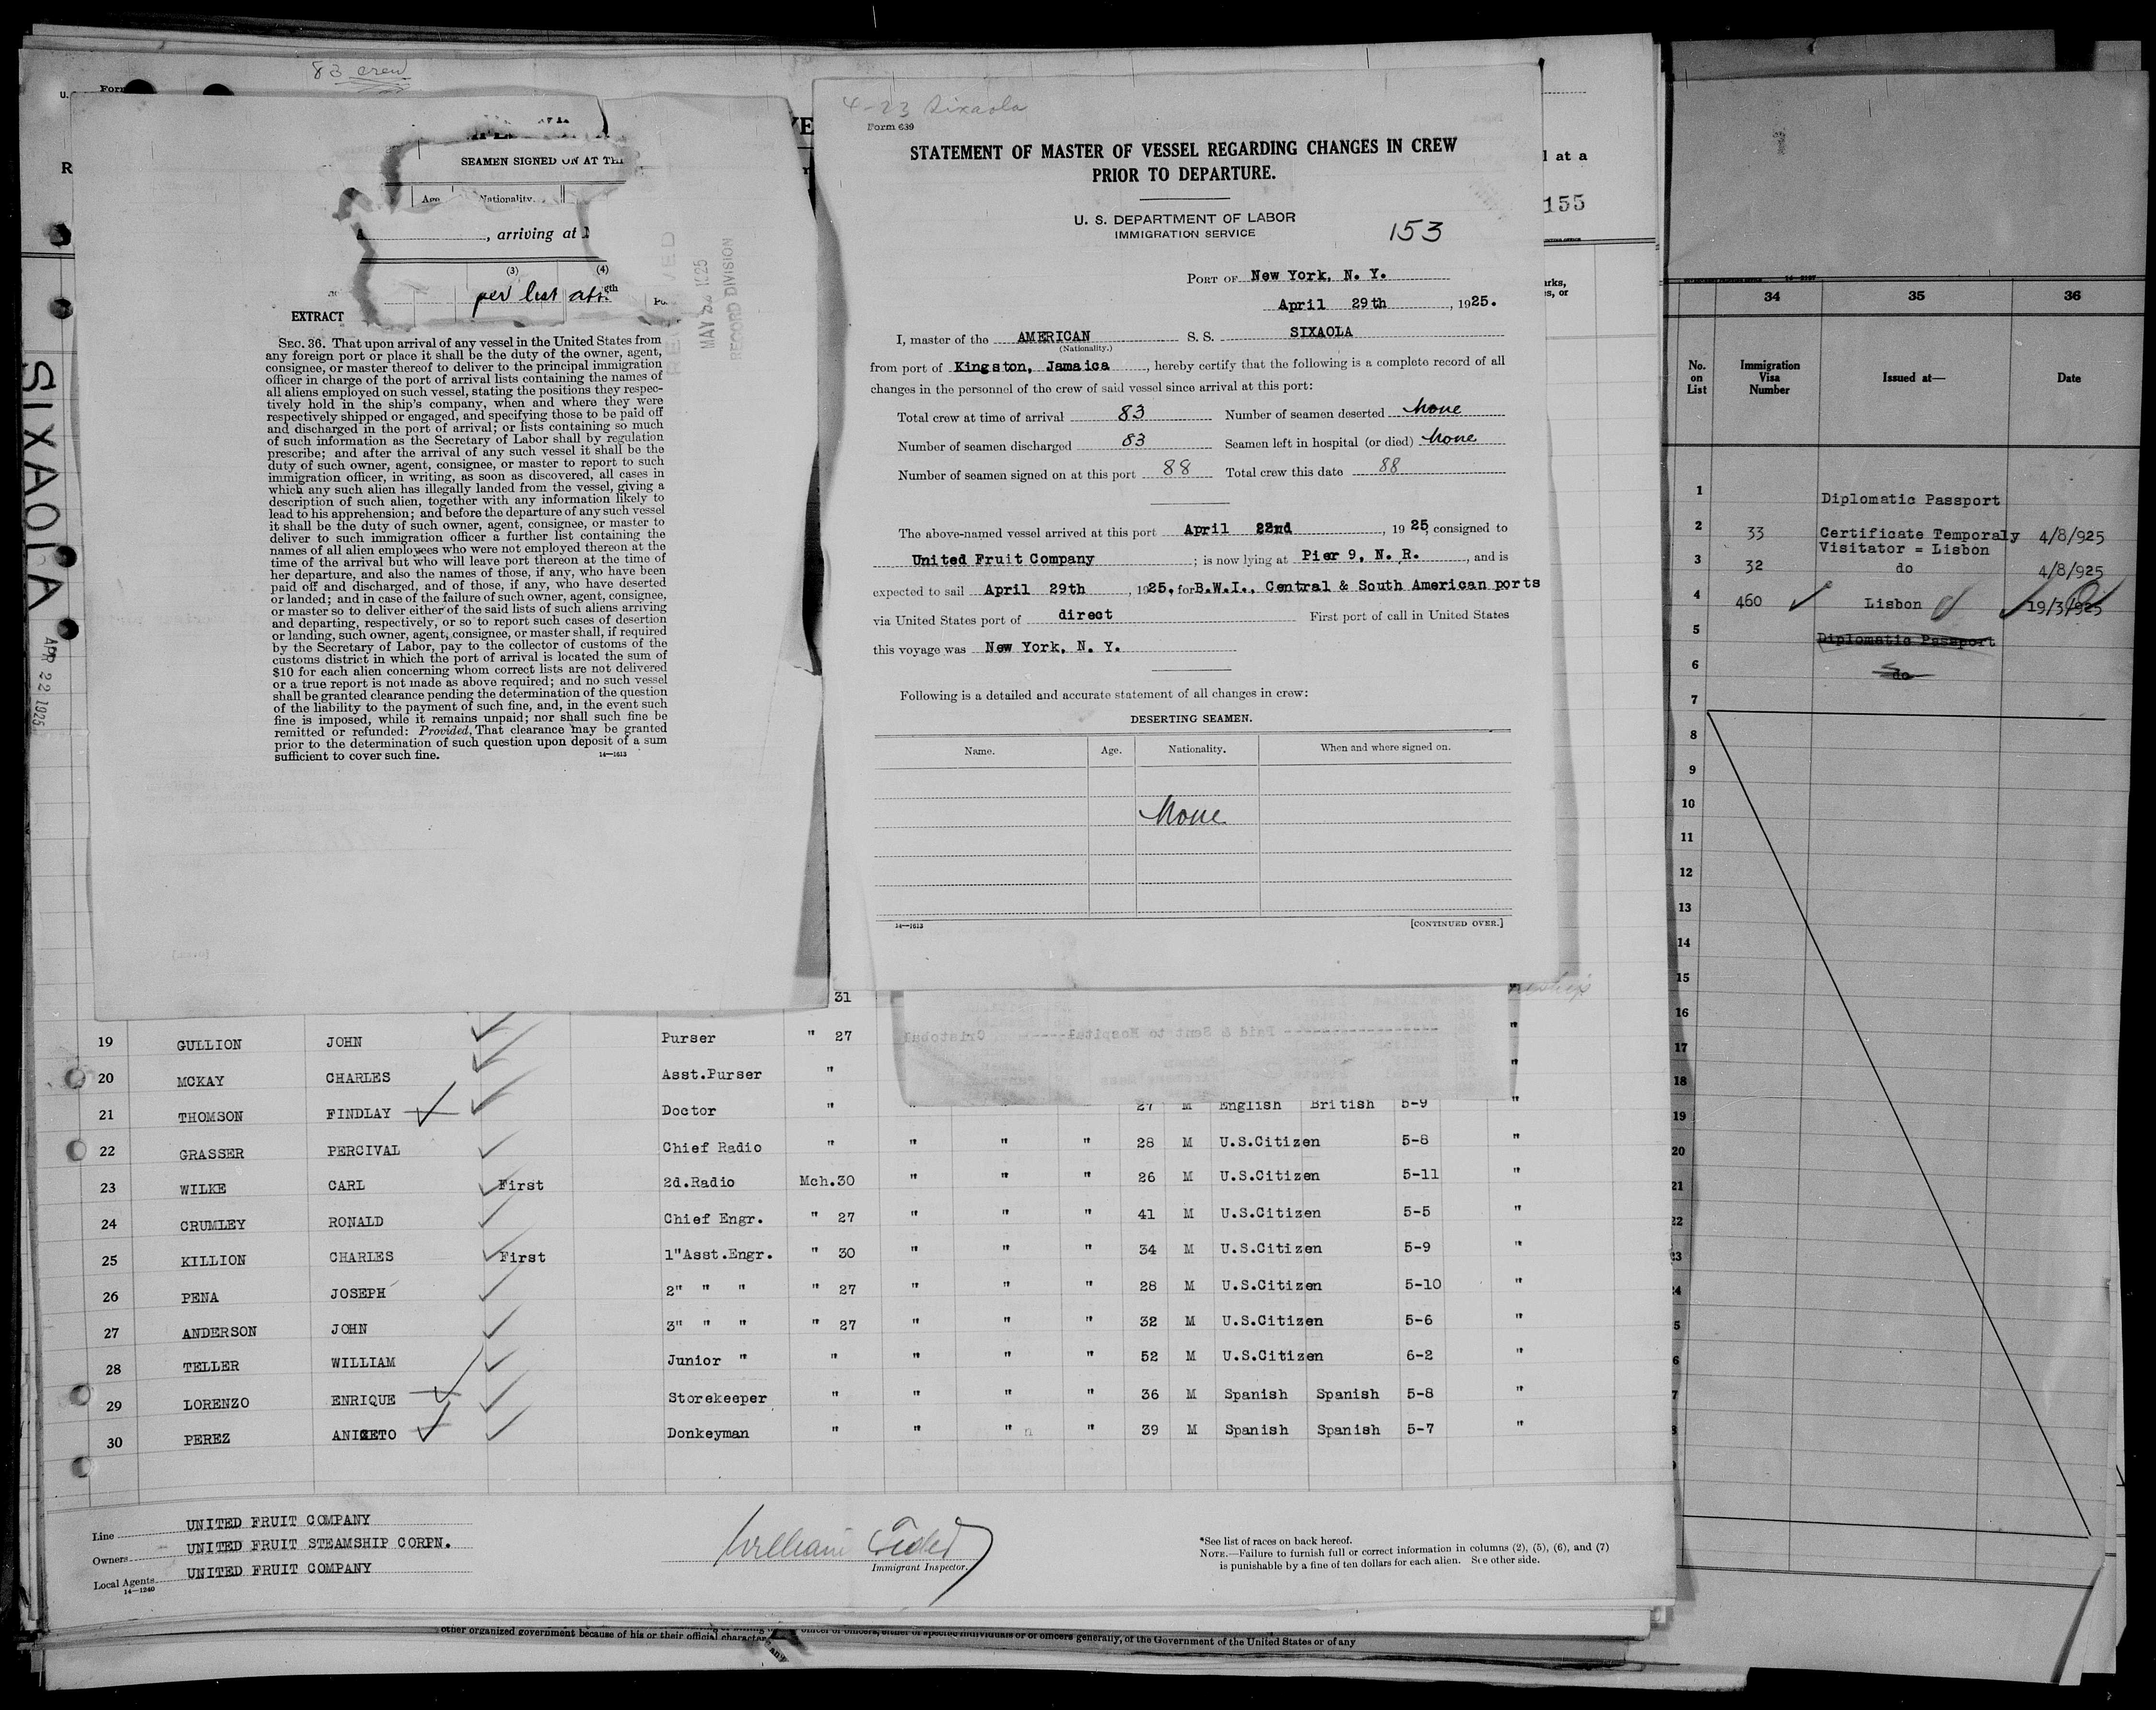 83 crew
Form
U.
R
SEAMEN SIGNED ON AT THE
Age Nationality.
, arriving at
(3) (4)
per list att.
EXTRACT
SEC. 36. That upon arrival of any vessel in the United States from
any foreign port or place it shall be the duty of the owner, agent,
consignee, or master thereof to deliver to the principal immigration
officer in charge of the port of arrival lists containing the names of
all aliens employed on such vessel, stating the positions they respec-
tively hold in the ship's company, when and where they were
respectively shipped or engaged, and specifying those to be paid off
and discharged in the port of arrival; or lists containing so much
of such information as the Secretary of Labor shall by regulation
prescribe; and after the arrival of any such vessel it shall be the
duty of such owner, agent, consignee, or master to report to such
immigration officer, in writing, as soon as discovered, all cases in
which any such alien has illegally landed from the vessel, giving a
description of such alien, together with any information likely to
lead to his apprehension; and before the departure of any such vessel
it shall be the duty of such owner, agent, consignee, or master to
deliver to such immigration officer a further list containing the
names of all alien employees who were not employed thereon at the
time of the arrival but who will leave port thereon at the time of
her departure, and also the names of those, if any, who have been
paid off and discharged, and of those, if any, who have deserted
or landed; and in case of the failure of such owner, agent, consignee,
or master so to deliver either of the said lists of such aliens arriving
and departing, respectively, or so to report such cases of desertion
or landing, such owner, agent, consignee, or master shall, if required
by the Secretary of Labor, pay to the collector of customs of the
customs district in which the port of arrival is located the sum of
$10 for each alien concerning whom correct lists are not delivered
or a true report is not made as above required; and no such vessel
shall be granted clearance pending the determination of the question
of the liability to the payment of such fine, and, in the event such
fine is imposed, while it remains unpaid; nor shall such fine be
remitted or refunded: Provided, That clearance may be granted
prior to the determination of such question upon deposit of a sum
sufficient to cover such fine. 14—1613
RECEIVED
MAY 1925
RECORD DIVISION
SIXAOLA
APR 22 1925
4-23 Sixaola
Form 639
STATEMENT OF MASTER OF VESSEL REGARDING CHANGES IN CREW
PRIOR TO DEPARTURE.
U. S. DEPARTMENT OF LABOR
IMMIGRATION SERVICE
153
PORT OF New York, N. Y.
April 29th, 1925.
I, master of the AMERICAN S. S. SIXAOLA
(Nationality.)
from port of Kingston, Jamaica, hereby certify that the following is a complete record of all
changes in the personnel of the crew of said vessel since arrival at this port:
Total crew at time of arrival 83 Number of seamen deserted None
Number of seamen discharged 83 Seamen left in hospital (or died) None
Number of seamen signed on at this port 88 Total crew this date 88
The above-named vessel arrived at this port April 22nd, 1925, consigned to
United Fruit Company; is now lying at Pier 9, N. R., and is
expected to sail April 29th, 1925, for B.W.I., Central & South American ports
via United States port of direct First port of call in United States
this voyage was New York, N. Y.
Following is a detailed and accurate statement of all changes in crew:
DESERTING SEAMEN.
Name. Age. Nationality. When and where signed on.
None
14—1613 [CONTINUED OVER.]
l at a
155
31
Paid & Sent to Hospital Cristobal
19 GULLION JOHN Purser " 27 "
20 MCKAY CHARLES Asst.Purser " "
21 THOMSON FINDLAY Doctor " " " " 27 M English British 5-9 "
22 GRASSER PERCIVAL Chief Radio " " " " 28 M U.S.Citizen 5-8 "
23 WILKE CARL First 2d.Radio Mch.30 " " " 26 M U.S.Citizen 5-11 "
24 CRUMLEY RONALD Chief Engr. " 27 " " " 41 M U.S.Citizen 5-5 "
25 KILLION CHARLES First 1"Asst.Engr. " 30 " " " 34 M U.S.Citizen 5-9 "
26 PENA JOSEPH 2" " " " 27 " " " 28 M U.S.Citizen 5-10 "
27 ANDERSON JOHN 3" " " " 27 " " " 32 M U.S.Citizen 5-6 "
28 TELLER WILLIAM Junior " " " " " 52 M U.S.Citizen 6-2 "
29 LORENZO ENRIQUE Storekeeper " " " " 36 M Spanish Spanish 5-8 "
30 PEREZ ANICETO Donkeyman " " " " 39 M Spanish Spanish 5-7 "
Line UNITED FRUIT COMPANY
Owners UNITED FRUIT STEAMSHIP CORPN.
Local Agents UNITED FRUIT COMPANY
14—1240
William
Immigrant Inspector.
*See list of races on back hereof.
NOTE.—Failure to furnish full or correct information in columns (2), (5), (6), and (7)
is punishable by a fine of ten dollars for each alien. See other side.
other organized government because of his or their official character
officer or officers, either of specific individuals or of officers generally, of the Government of the United States or of any
34 35 36
No. on List Immigration Visa Number Issued at— Date
1 Diplomatic Passport
2 33 Certificate Temporaly 4/8/925
Visitator = Lisbon
3 32 do 4/8/925
4 460 Lisbon 19/3/925
5 Diplomatic Passport
6 do
7
8
9
10
11
12
13
14
15
16
17
18
19
20
21
22
23